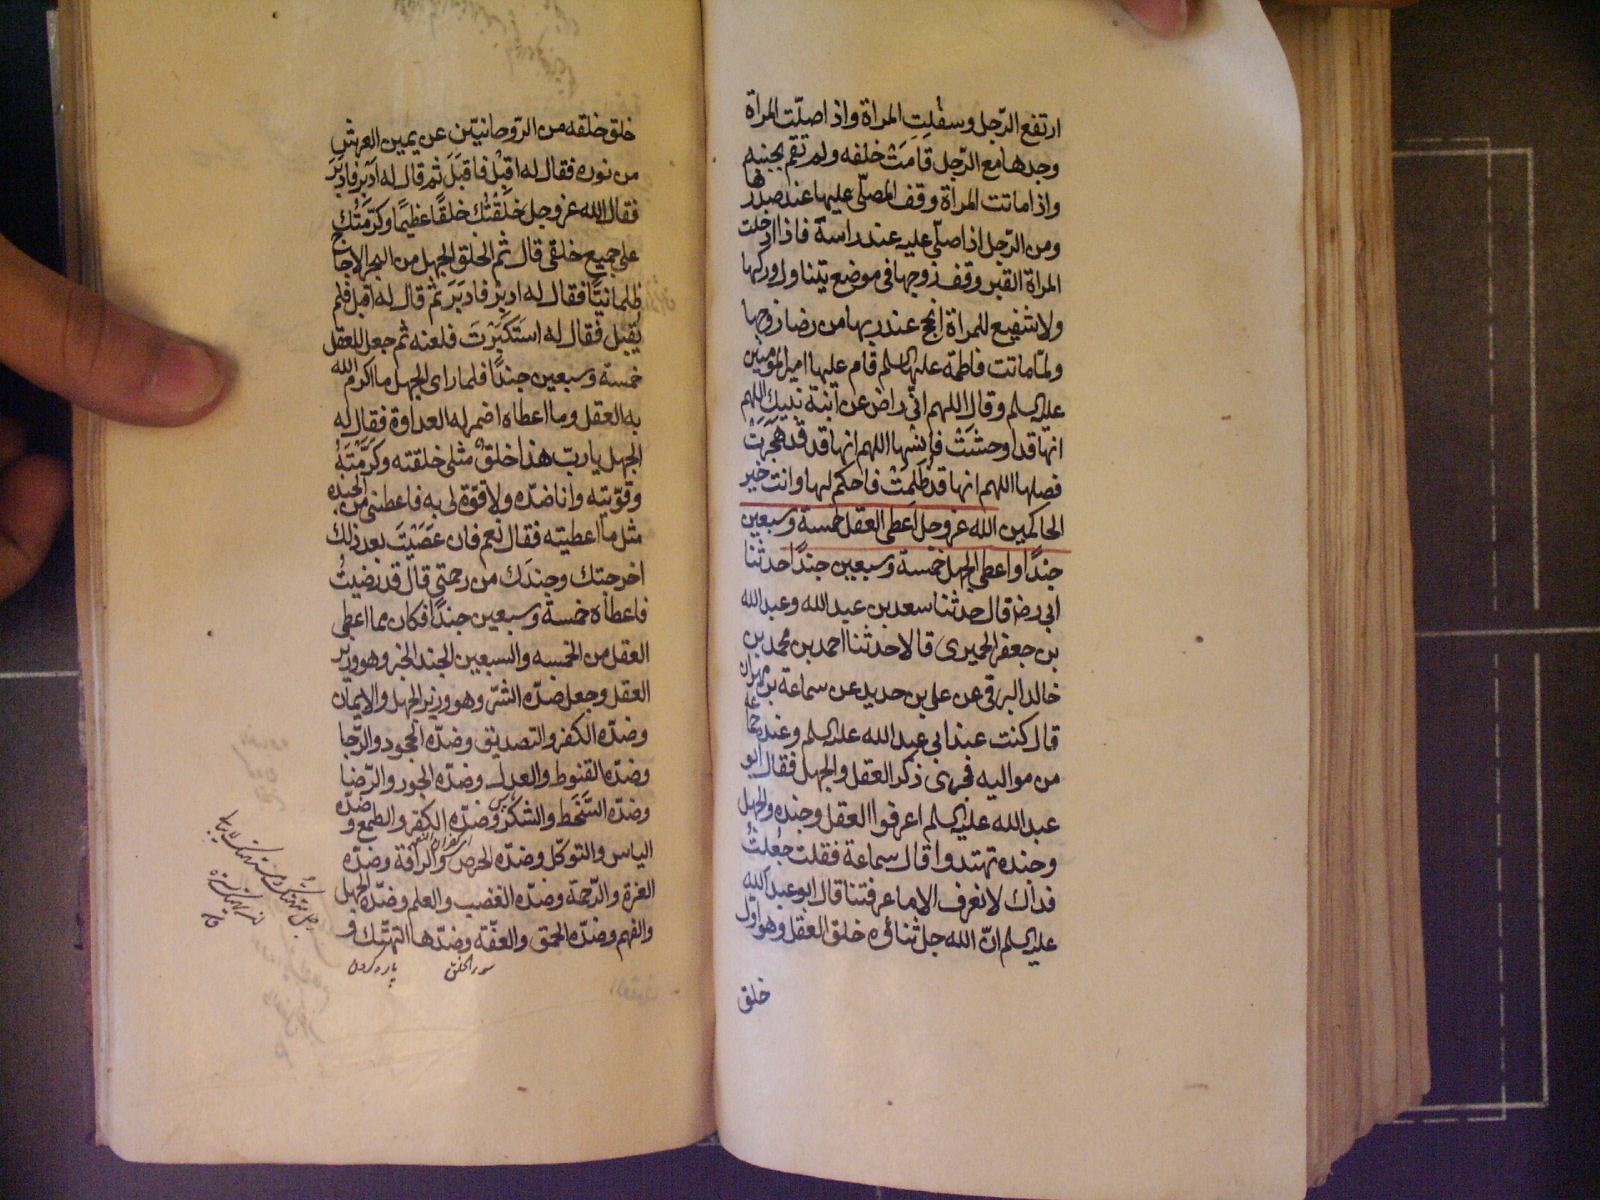 ارتفع الرّجل وسفُلتِ المراة واذ اصلّت المراة
وحدها مع الرّجل قامَتْ خلفه ولم تقم بجنبه
واذا ماتت المرأة وقف المصلّى عليها عند صدرها
ومن الرّجل اذا صلّى عليه عند راسه فاذا ادخلت
المراة القبر وقف زوجها فى موضع يتناول وركها
ولا شفيع للمراة انجح عند ربها من رضا زوجها
ولمّا ماتت فاطمة عليها السلم قام عليها امير المومنين
عليه السلم وقال اللهم انّى راض عن ابنة نبيك اللهم
انها قد اوحشتْ فانسها اللهم انها قد قد هَجَرَتْ
فصلها اللهم انها قد ظلمتْ فاحكم لها وانت خير
الحاكمين الله عز وجل اعطى العقل خمسة وسبعين
جندًا واعطى الجهل خمسة وسبعين جندًا حدثنا
ابى رضه قال حدثنا سعد بن عبد الله وعبد الله
بن جعفر الحميرى قالا حدثنا احمد بن محمد بن
خالد البرقى عن على بن حديد عن سماعة بن مهران
قال كنت عند ابى عبد الله عليه السلم وعنده جماعة
من مواليه فجرى ذكر العقل والجهل فقال ابو
عبد الله عليه السلم اعرفوا العقل وجنده والجهل
وجنده تهتدوا قال سماعة فقلت جُعلتُ
فداك لا نعرف الا ما عرفتنا قال ابو عبد الله
عليه السلم انّ الله جل ثناؤه خلق العقل وهو اول
خلق
خلق خلقه من الرّوحانيّين عن يمين العرش
من نوره فقال له اقبِلْ فاقبَلَ ثم قال له ادبر فادبَرَ
فقال الله عز وجل خَلَقْتُك خلقًا عظيمًا وكرّمتُك
على جميع خلقى قال ثم الخلق الجهل من البحر الاجاج
ظلمانيّاً فقال له ادبرْ فادبَرَ ثم قال له اقبل فلم
يُقبل فقال له استَكبَرْتَ فلعنه ثم جعل للعقل
خمسة وسبعين جندًا فلما راى الجهل ما اكرم الله
به العقل وما اعطاه اضمر له العداوة فقال له
الجهل يا ربّ هذا خلقٌ مثلى خلقته وكَرَّمتَهُ
وقوّيته وانا ضدّه ولا قوّة لى به فاعطنى من الجند
مثل ما اعطيته فقال نعم فان عَصَيْتَ بعد ذلك
اخرجتك وجندَك من رحمتى قال قد رضيتُ
فاعطاه خمسة وسبعين جندًا فكان مما اعطى
العقل من الخمسه والسبعين الجند الخير وهو وزير
العقل وجعل ضدّه الشرّ وهو وزير الجهل والايمان
وضدّه الكفر والتصديق وضدّه الجحود والرّجا
وضدّه القنوط والعدل وضدّه الجور والرّضا
وضدّه السَّخَط والشكر وضدّه الكفر والطمع وضدّه
الياس والتوكل وضدّه الحرص والرافة وضدّه
الغرة والرّحمة وضدّه الغضب والعلم وضدّه الجهل
والفهم وضدّه الحمق والعفّة وضدّها التهتّك و
سوء الخلق
پاره كردن